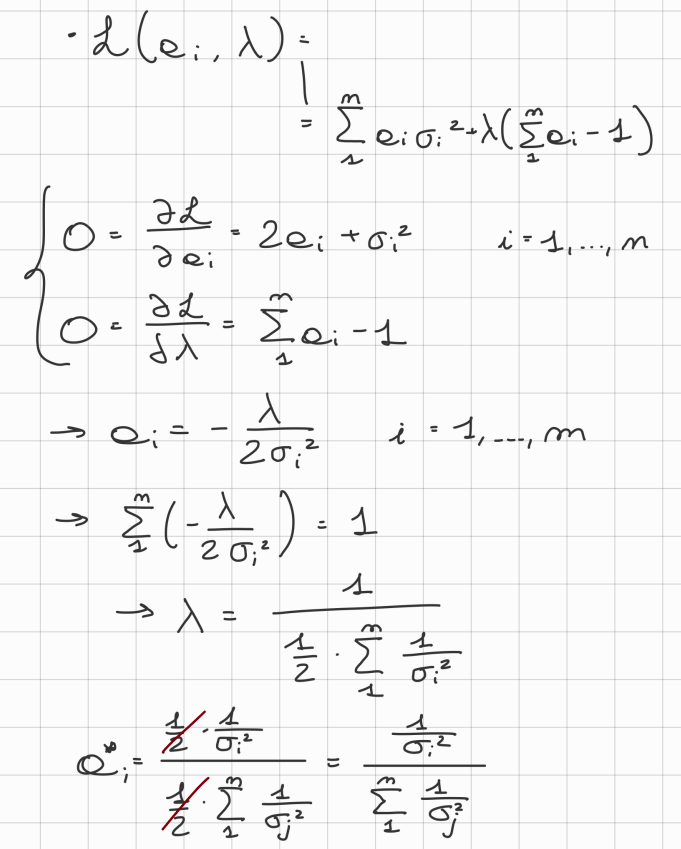 · ℒ(a_i, λ) =
= Σ_1^n a_i σ_i² + λ(Σ_1^n a_i − 1)
0 = ∂ℒ/∂a_i = 2a_i + σ_i² i = 1, ..., n
0 = ∂ℒ/∂λ = Σ_1^n a_i − 1
→ a_i = − λ/(2σ_i²) i = 1, ..., n
→ Σ_1^n (− λ/(2σ_i²)) = 1
→ λ = 1/(1/2 · Σ_1^n 1/σ_i²)
a*_i = (1/2 · 1/σ_i²)/(1/2 · Σ_1^n 1/σ_j²) = (1/σ_i²)/(Σ_1^n 1/σ_j²)